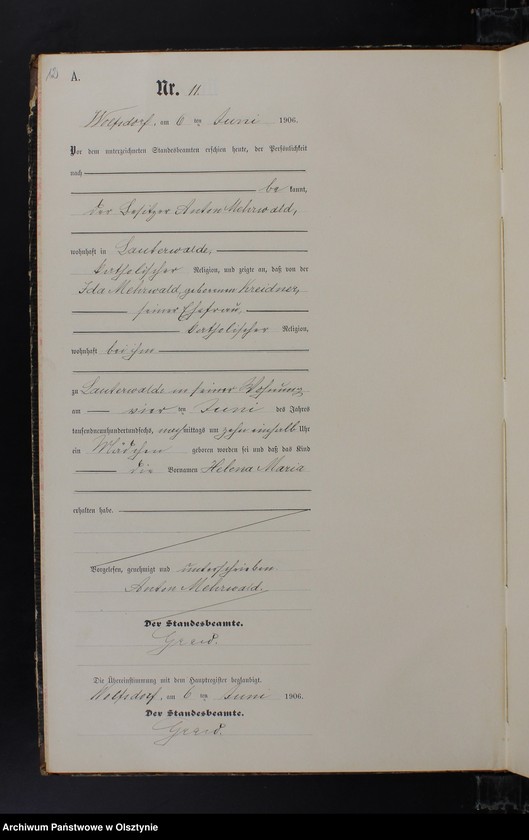 A.
Nr. 11
Wolfsdorf, am 6 ten Juni 1906.
Vor dem unterzeichneten Standesbeamten erschien heute, der Persönlichkeit
nach
be kannt,
der Besitzer Anton Mehrwald,
wohnhaft in Lauterwalde,
katholischer Religion, und zeigte an, daß von der
Ida Mehrwald, geborenen Kreidner,
seiner Ehefrau,
katholischer Religion,
wohnhaft bei ihm
zu Lauterwalde in seiner Wohnung
am vier ten Juni des Jahres
tausendneunhundertundsechs, nachmittags um zehn einhalb Uhr
ein Mädchen geboren worden sei und daß das Kind
die Vornamen Helena Maria
erhalten habe.
Vorgelesen, genehmigt und unterschrieben
Anton Mehrwald.
Der Standesbeamte.
Die Übereinstimmung mit dem Hauptregister beglaubigt.
Wolfsdorf, am 6 ten Juni 1906.
Der Standesbeamte.
Archiwum Państwowe w Olsztynie